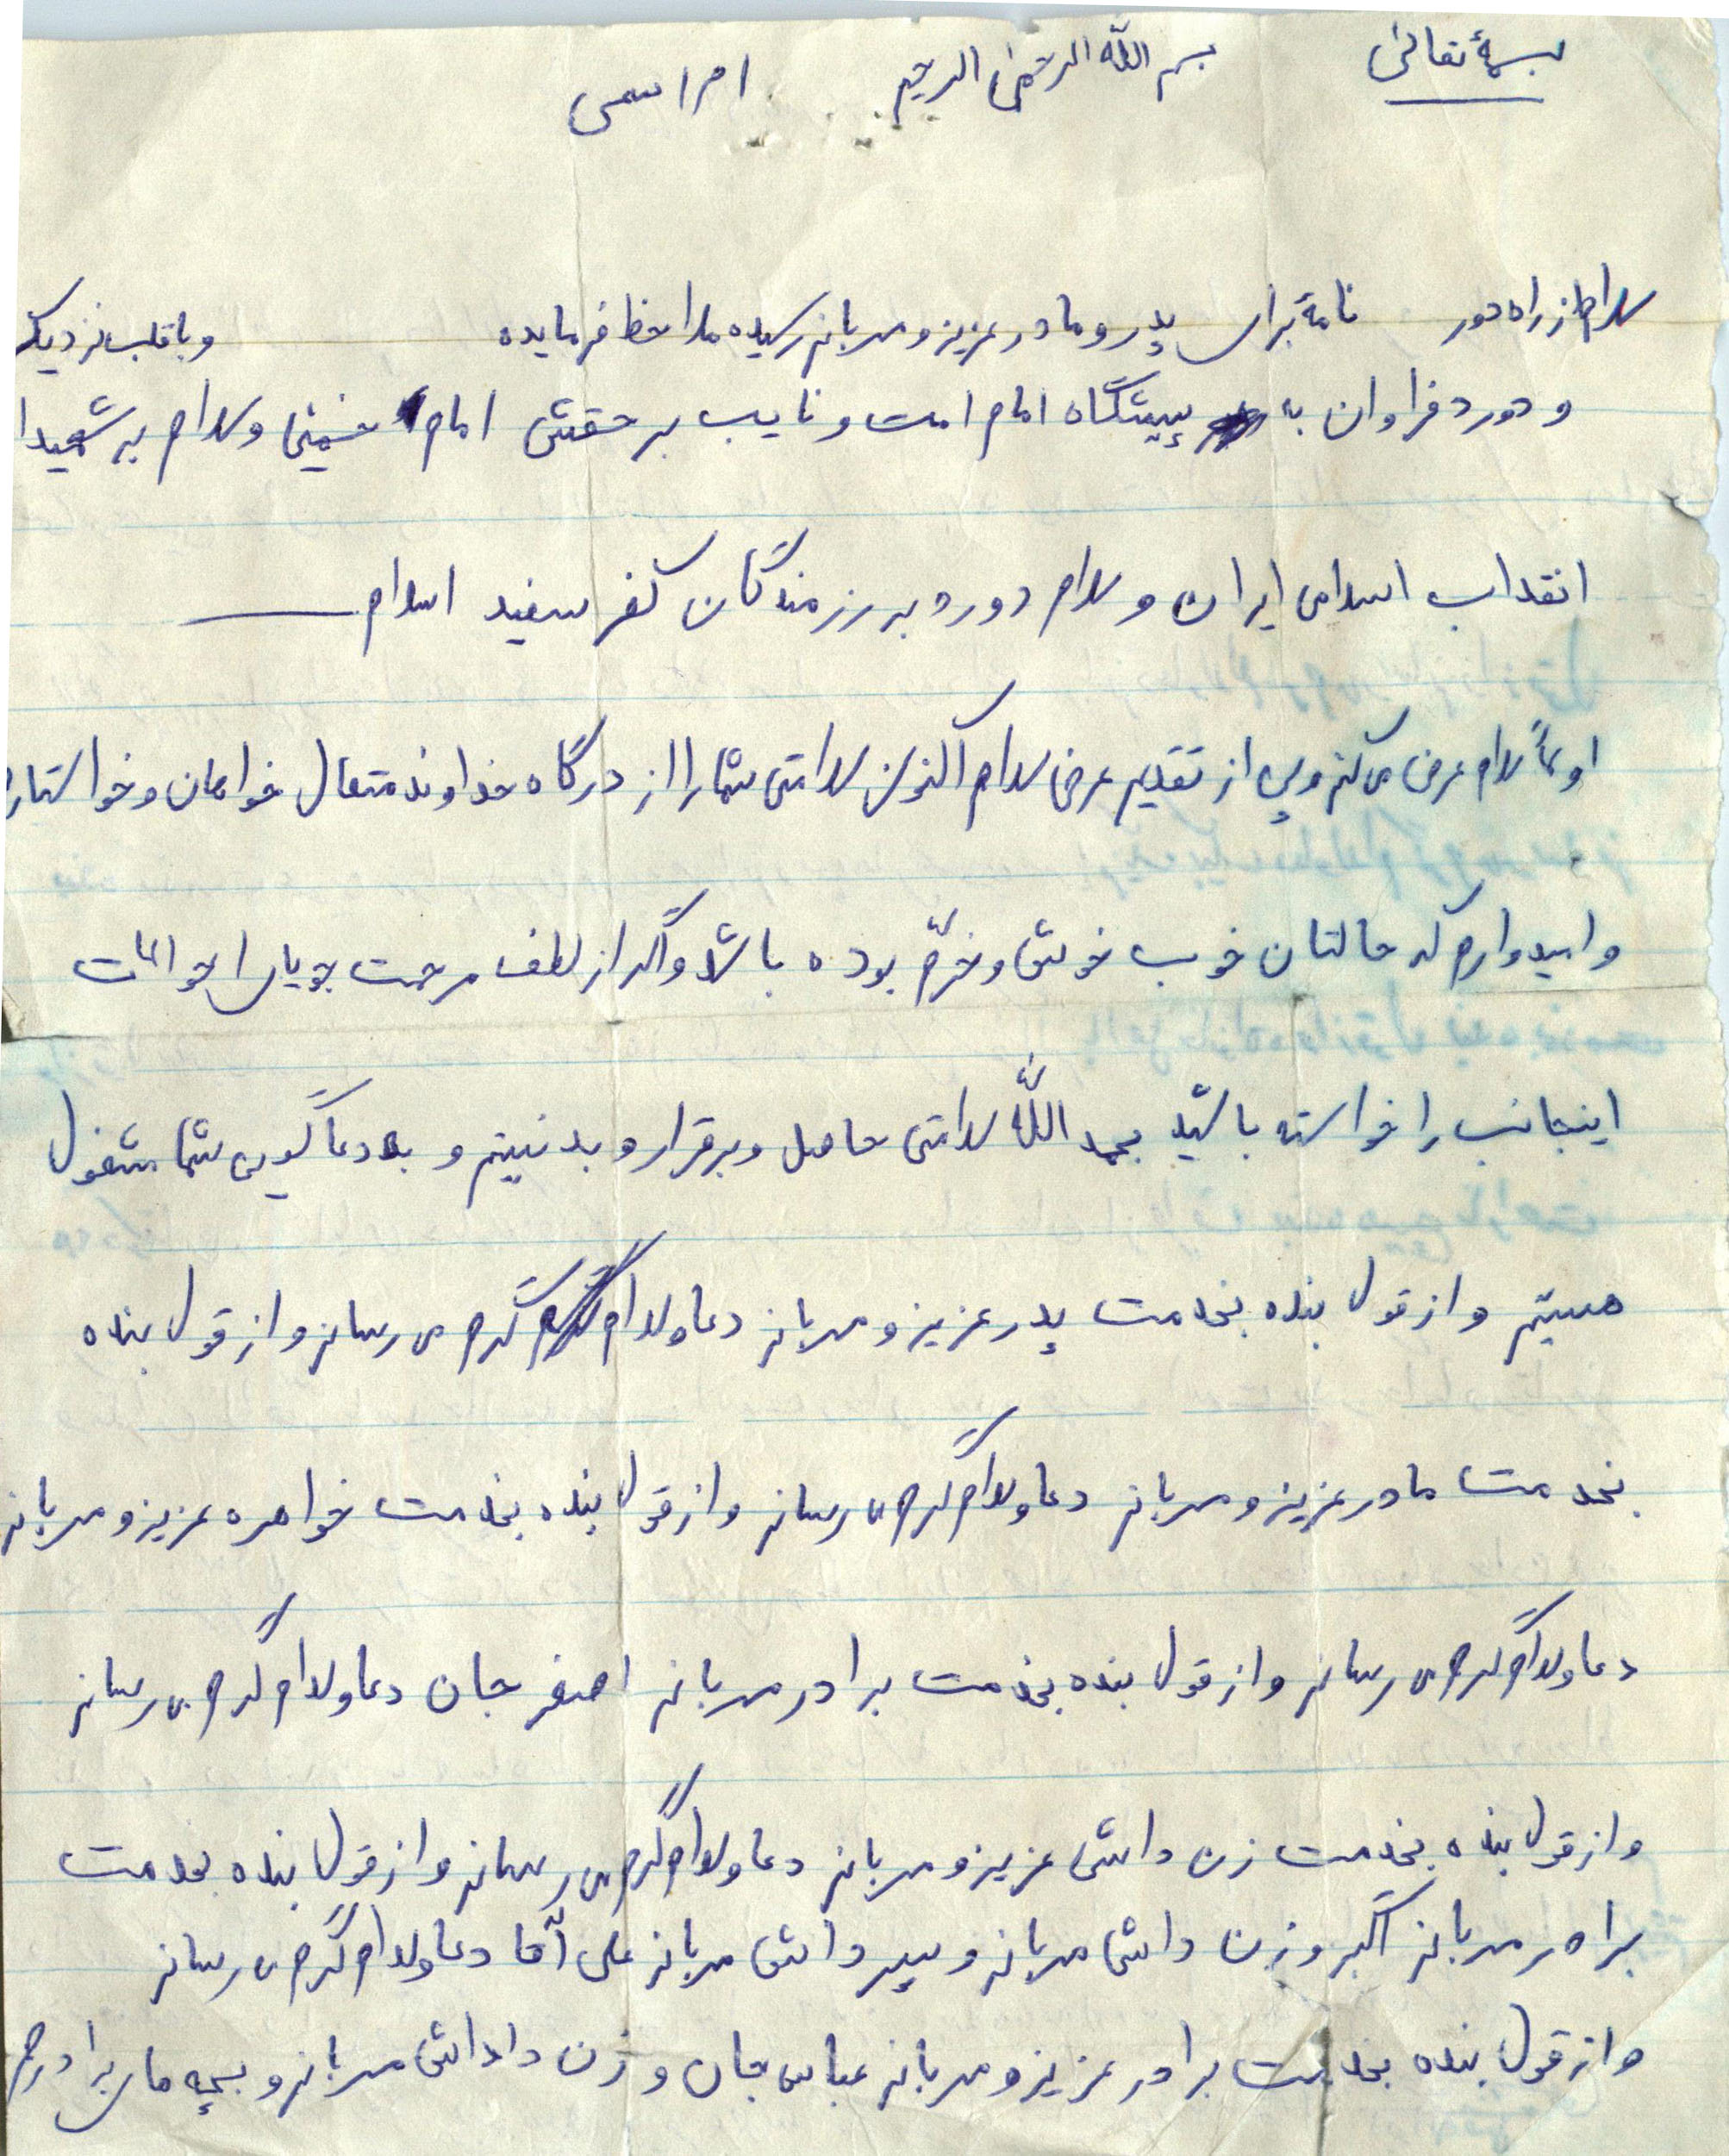 بسمهٔ تعالی بسم الله الرحمن الرحیم
سلام از راه دور نامهٔ برای پدر و مادر عزیز و مهربانم رسیده ملاحظ فرمایده و با قلب نزدیک
و دورد فراوان به پیشگاه امام امت و نایب بر حقش امام خمینی و سلام بر شهیدا
انقلاب اسلامی ایران و سلام دورد بر رزمندگان کفر سفید اسلام
اولاً سلام عرض می کنم و پس از تقدیم عرض سلام اکنون سلامتی شما را از درگاه خداوند متعال خواهان و خواستارم
و امیدوارم که حالتان خوب خوش و خرّم بوده باشد و اگر از لطف مرحمت جویای احوالات
اینجانب را خواسته باشید بحمد اللّه سلامتی حاصل و برقرار و بد نیستم و به دعا گویی شما مشغول
هستیم و از قول بنده بخدمت پدر عزیز و مهربانم دعا و سلام گرم می رسانم و از قول بنده
بخدمت مادر عزیز و مهربانم دعا و سلام گرم می رسانم و از قول بنده بخدمت خواهره عزیز و مهربانم
دعا و سلام گرم می رسانم و از قول بنده بخدمت برادر مهربانم اصغر جان دعا و سلام گرم می رسانم
و از قول بنده بخدمت زن داشی عزیز و مهربانم دعا و سلام گرم می رسانم و از قول بنده بخدمت
برادر مهربانم اکبر و زن داشی مهربانم و پسر داشی مهربانم علی آقا دعا و سلام گرم می رسانم
و از قول بنده بخدمت برادر عزیز و مهربانم عباس جان و زن داداشی مهربانم و بچه های برادرم